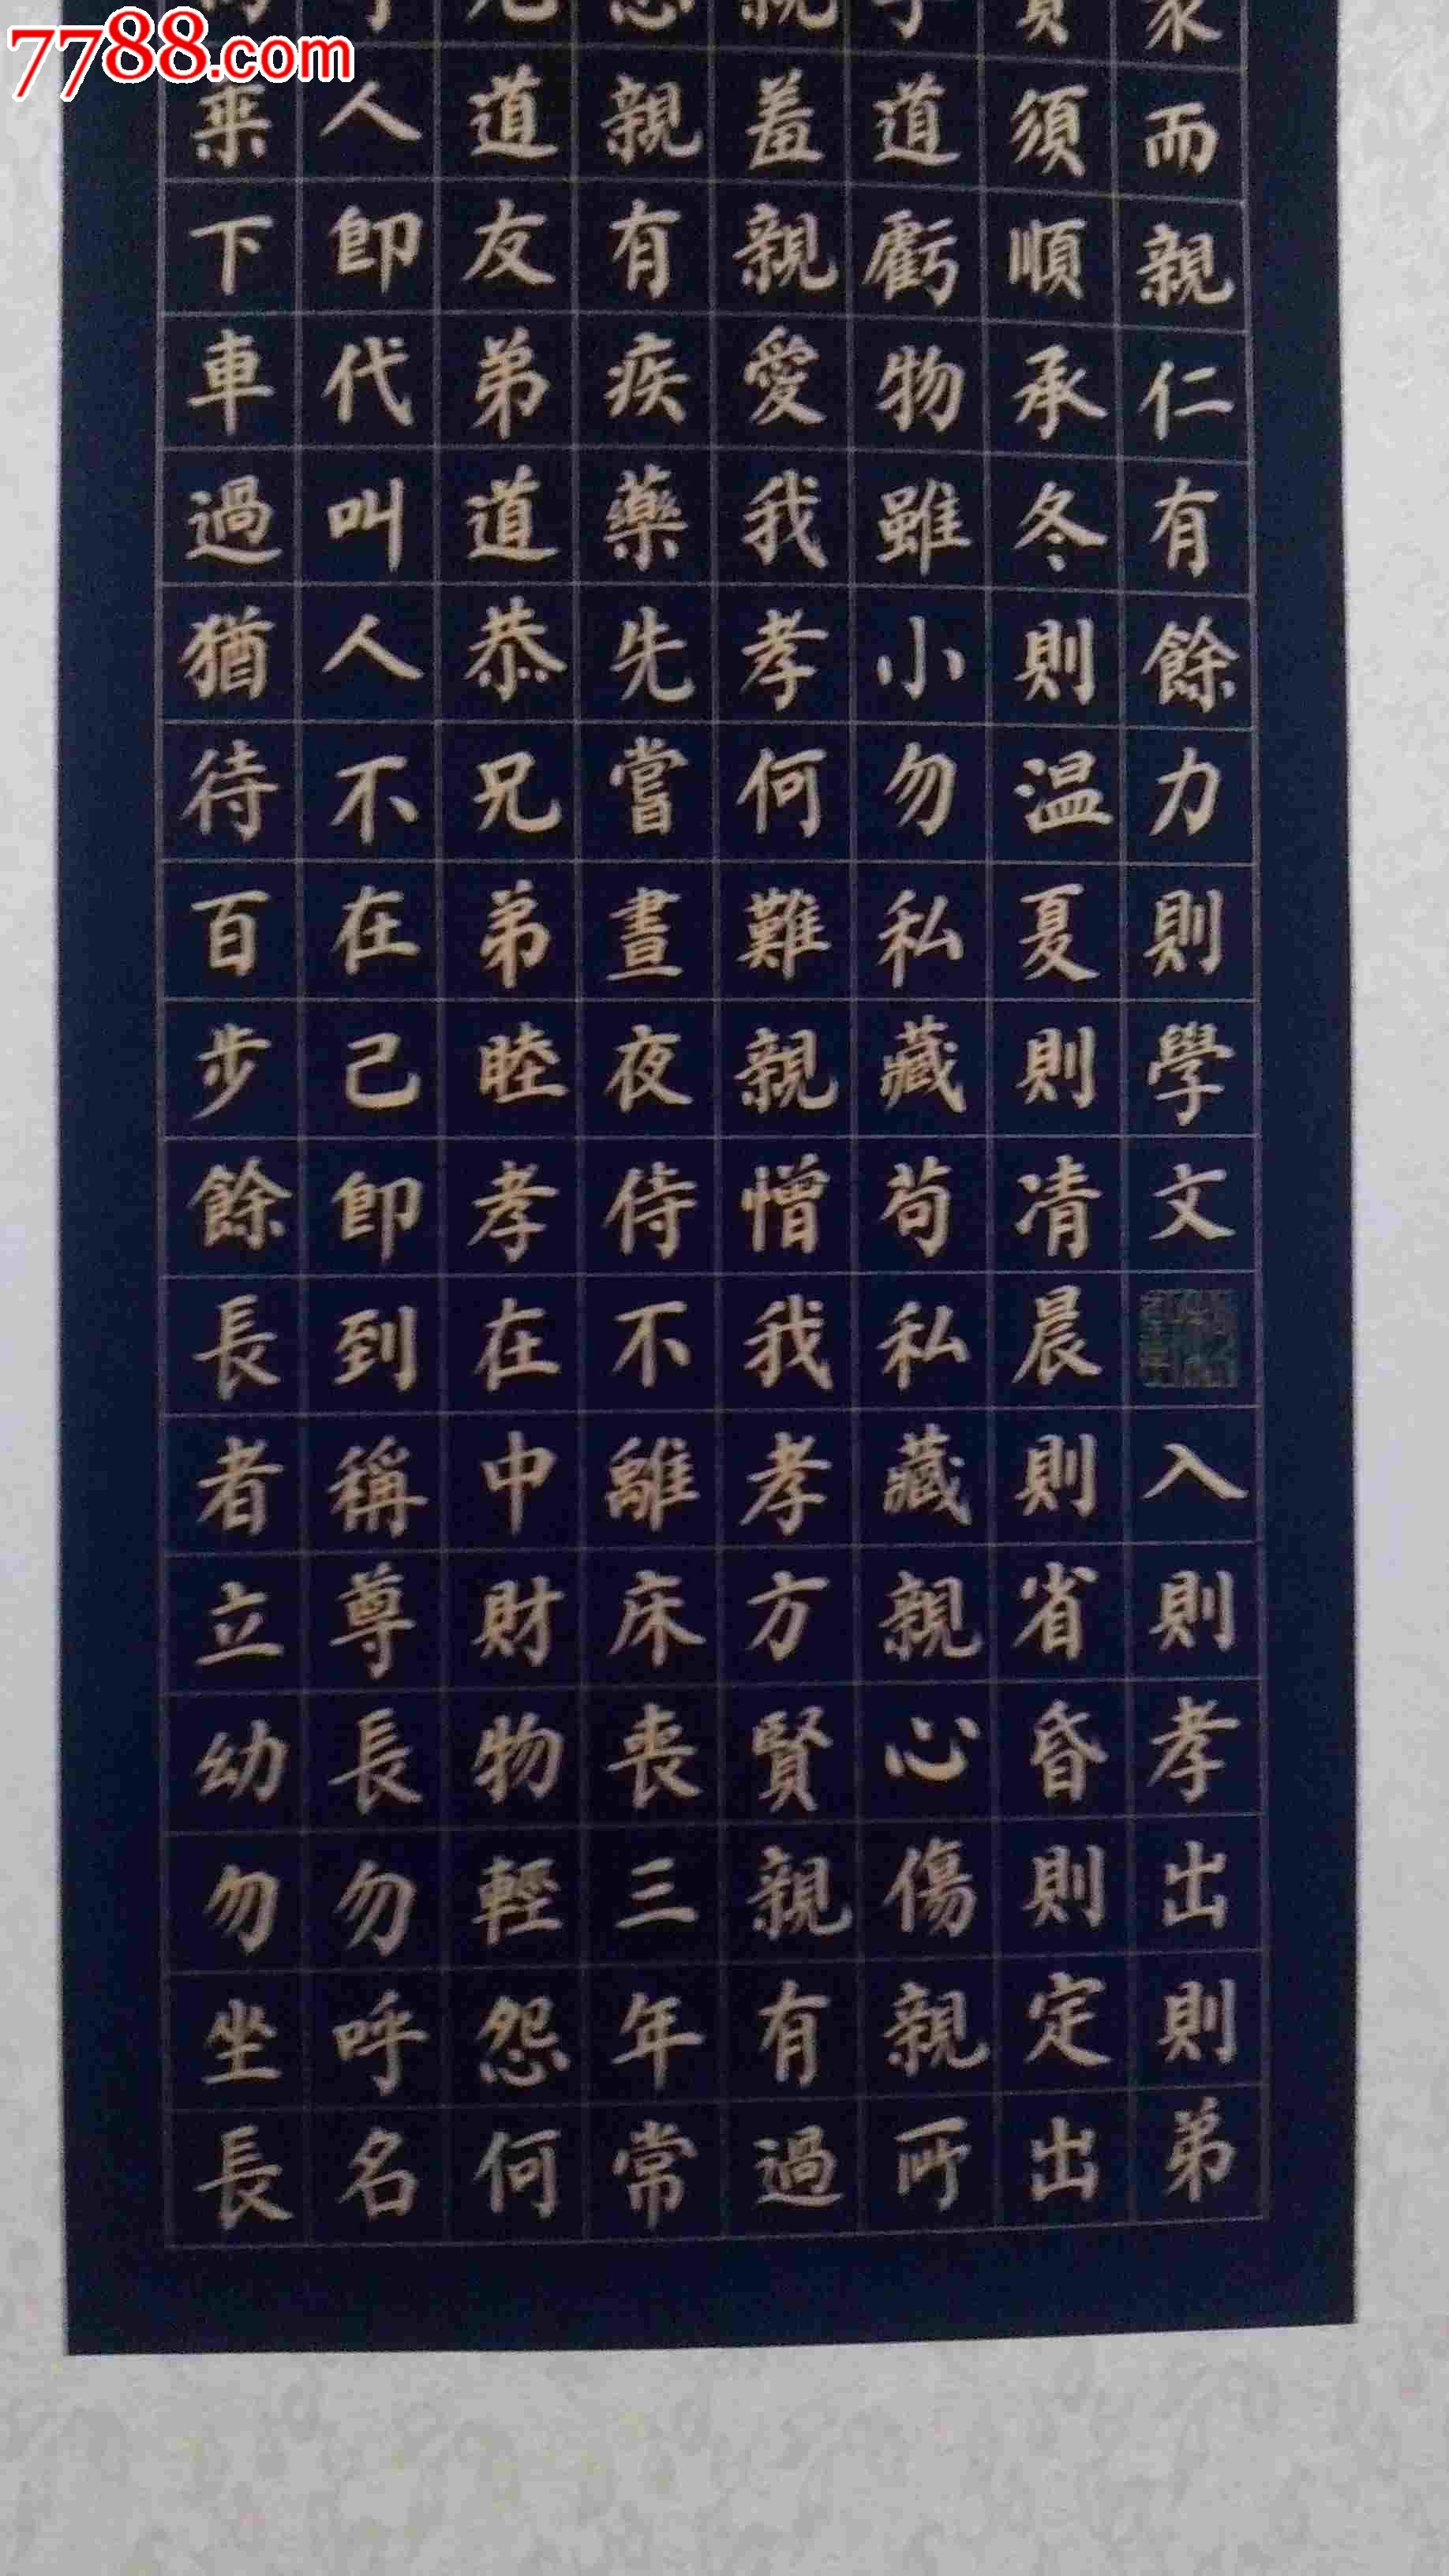 7788.com
而親仁有餘力則學文
入則孝出則弟
須順承冬則温夏則凊晨則省昏則定出
道虧物雖小勿私藏苟私藏親心傷親所
羞親愛我孝何難親憎我孝方賢親有過
親有疾藥先嘗晝夜侍不離床喪三年常
道友弟道恭兄弟睦孝在中財物輕怨何
人即代叫人不在己即到稱尊長勿呼名
乘下車過猶待百步餘長者立幼勿坐長